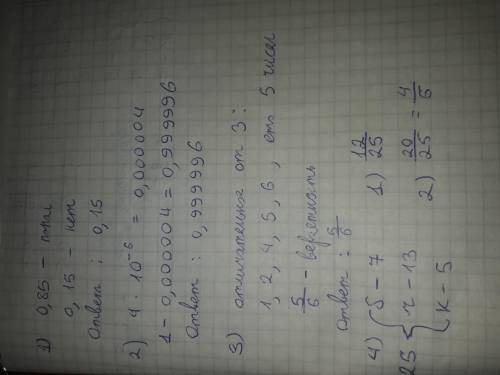 1) 0,85 – попал
0,15 – нет
Ответ: 0,15
2) 4 · 10⁻⁶ = 0,000004
1 – 0,000004 = 0,999996
Ответ: 0,999996
3) отличательное от 3:
1, 2, 4, 5, 6, его 5 чисел
5/6 – вероятность
Ответ: 5/6
4) 25 { Б – 7
ч – 13
к – 5
1) 12/25
2) 20/25 = 4/5